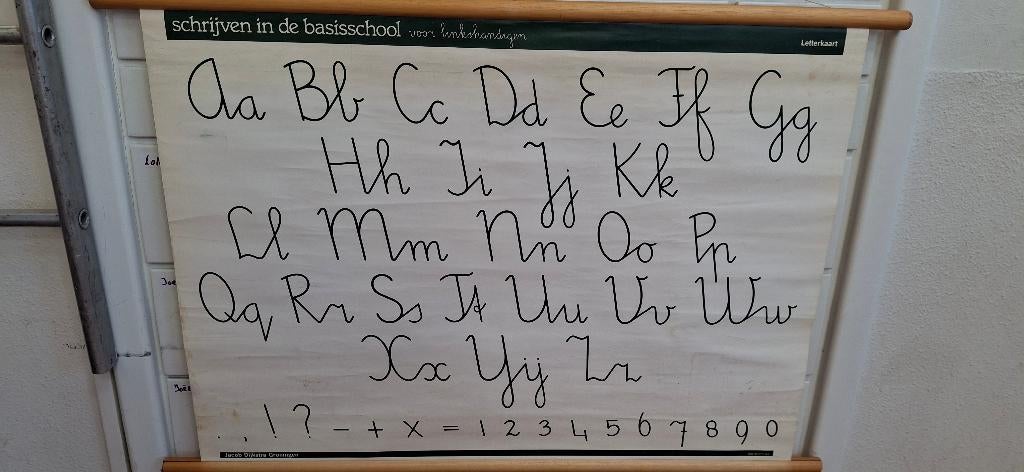 schrijven in de basisschool voor linkshandigen
Letterkaart
Aa Bb Cc Dd Ee Ff Gg
Hh Ii Jj Kk
Ll Mm Nn Oo Pp
Qq Rr Ss Tt Uu Vv Ww
Xx Yij Zz
. , ! ? - + x = 1 2 3 4 5 6 7 8 9 0
Jacob Dijkstra Groningen